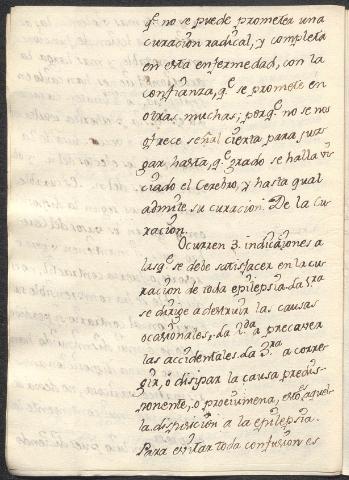 q.e no se puede prometer una
curacion radical, y completa
en esta enfermedad, con la
confianza, q.e se promete en
otras muchas; porq.e no se nos
ofrece señal cierta para juz-
gar hasta, q.e grado se halla vi-
ciado el Cerebro, y hasta qual
admite su curacion. De la Cu-
racion.
Ocurren 3. indicaziones a
las q.e se debe satisfacer en la cu-
racion de toda epilepsia. La 1.ra
se dirige a destruir las causas
ocasionales, la 2.da a precaver
las accidentales. La 3.ra a corre-
gir, o disipar la causa predis-
ponente, o procumena, esto, aque-
lla disposicion a la epilepsia.
Para evitar toda confusion es